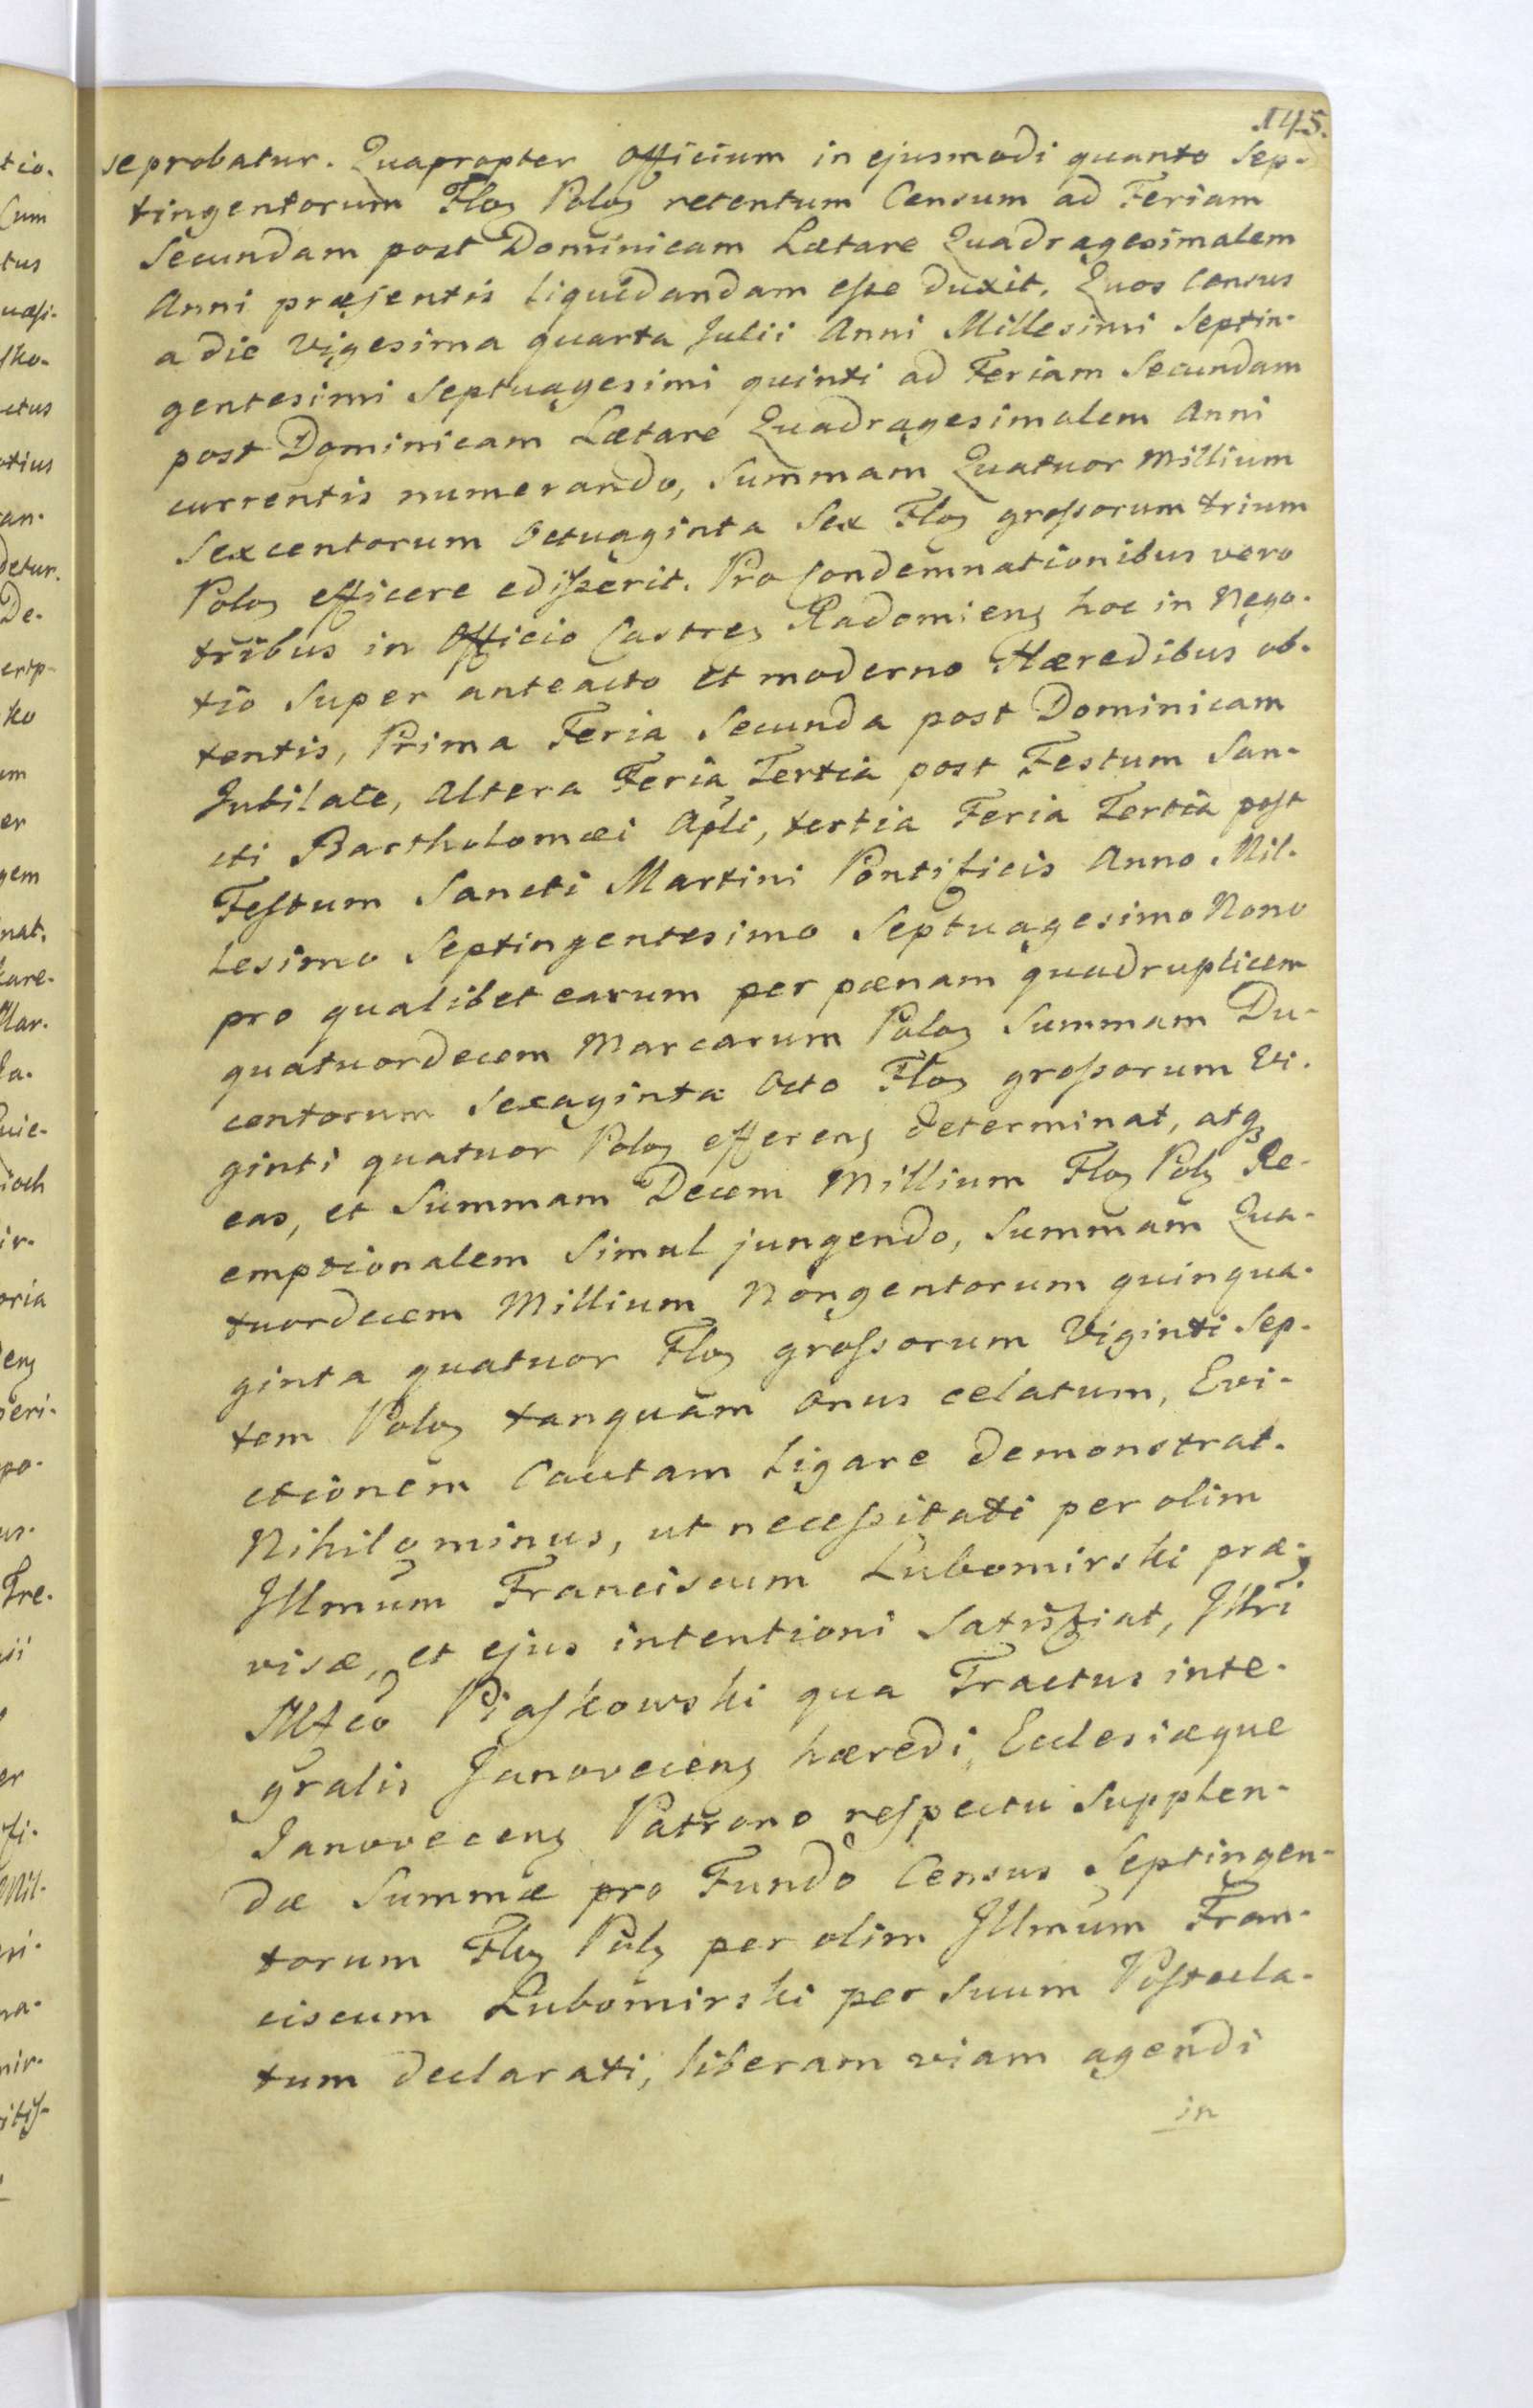 145.
se probatur. Quapropter Officium in ejusmodi quanto Sep-
tingentorum Floꝫ Poloꝫ retentum Censum ad Feriam
Secundam post Dominicam Lætare Quadragesimalem
Anni præsentis liquidandam esse duxit. Quos Census
a die Vigesima quarta Julii Anni Millesimi Septin-
gentesimi Septuagesimi quinti ad Feriam Secundam
post Dominicam Lætare Quadragesimalem Anni
currentis numerando, Summam Quatuor Millium
Sexcentorum Octuaginta Sex Floꝫ grossorum trium
Poloꝫ efficere edisserit. Pro Condemnationibus vero
tribus in Officio Castreꝫ Radomienꝫ hoc in Nego-
tio Super anteacto et moderno Hæredibus ob-
tentis, Prima Feria Secunda post Dominicam
Jubilate, Altera Feria Tertia post Festum San-
cti Bartholomæi Apli, tertia Feria Tertia post
Festum Sancti Martini Pontificis Anno Mil-
lesimo Septingentesimo Septuagesimo Nono
pro qualibet earum per pœnam quadruplicem
quatuordecem Marcarum Poloꝫ Summam Du-
centorum Sexaginta Octo Floꝫ grossorum Vi-
ginti quatuor Poloꝫ efferenꝫ determinat, atqꝫ
eas, et Summam Decem Millium Floꝫ Polꝫ Re-
emptionalem Simul jungendo, Summam Qua-
tuordecem Millium Nongentorum quinqua-
ginta quatuor Floꝫ grossorum Viginti Sep-
tem Poloꝫ tanquam onus celatum, Evi-
ctionem Cautam ligare demonstrat.
Nihilominus, ut necessitati per olim
Illmum Franciscum Lubomirski præ-
visæ, et ejus intentioni Satisfiat, Illri
Mfco Piaskowski qua Tractus inte-
gralis Janovecenꝫ hæredi, Ecclesiæque
Janovecenꝫ Patrono respectu Supplen-
dæ Summæ pro Fundo Census Septingen-
torum Floꝫ Polꝫ per olim Illmum Fran-
ciscum Lubomirski per Suum Postocla-
tum declarati, liberam viam agendi
in